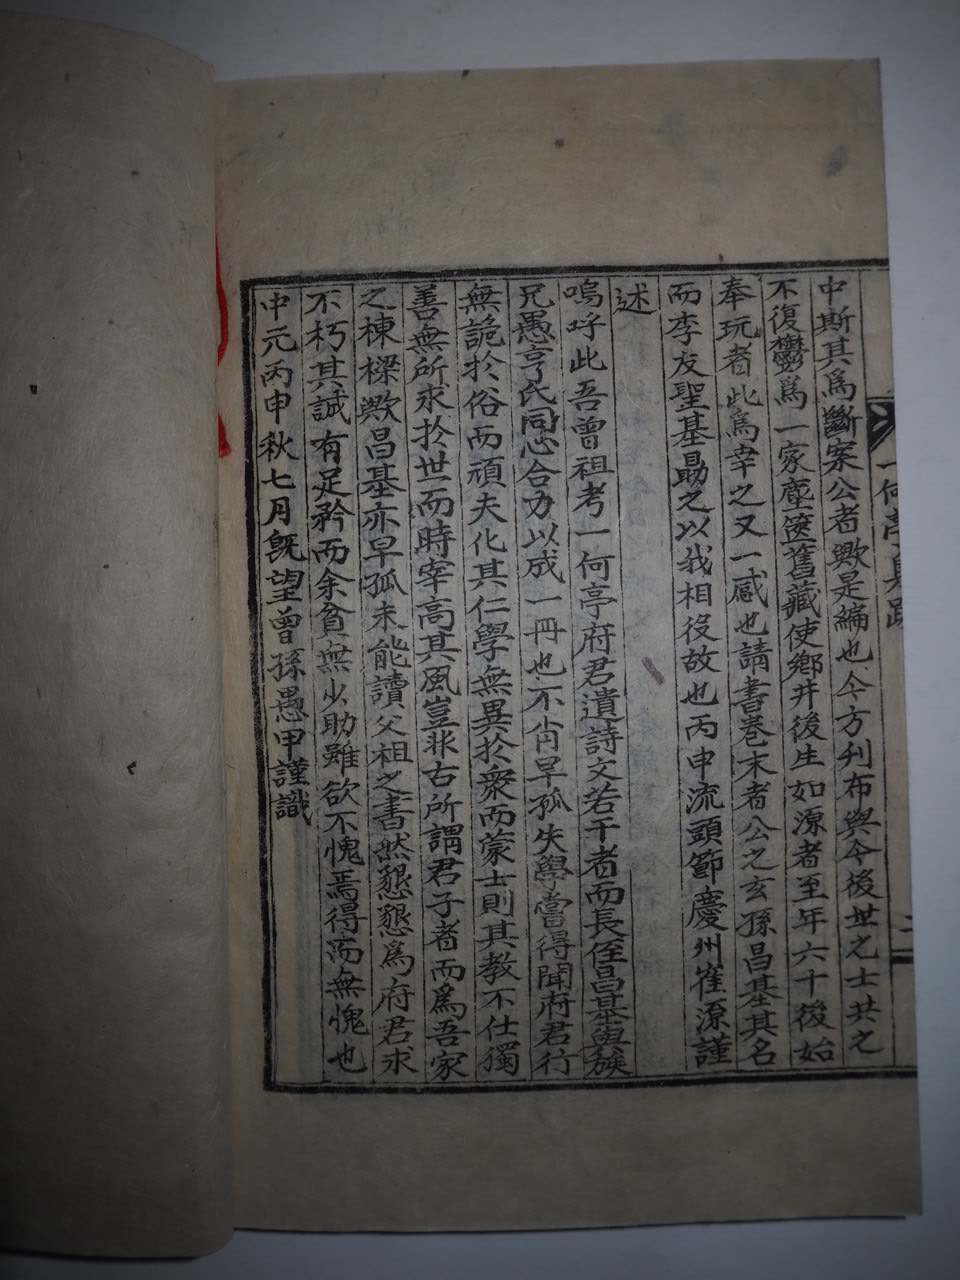 一何亭集跋
二
中斯其爲斷案公者歟是編也今方刋布與今後世之士共之
不復欝爲一家塵篋舊藏使鄕井後生如源者至年六十後始
奉玩者此爲幸之又一感也請書卷末者公之玄孫昌基其名
而李友聖基勗之以我相役故也丙申流頭節慶州崔源謹
述
嗚呼此吾曾祖考一何亭府君遺詩文若干者而長侄昌基與族
兄愚亨氏同心合力以成一冊也不肖早孤失學嘗得聞府君行
無詭於俗而頑夫化其仁學無異於衆而蒙士則其教不仕獨
善無所求於世而時宰高其風豈非古所謂君子者而爲吾家
之棟樑歟昌基亦早孤未能讀父祖之書然懇懇爲府君求
不朽其誠有足矜而余貧無少助雖欲不愧焉得而無愧也
中元丙申秋七月旣望曾孫愚甲謹識